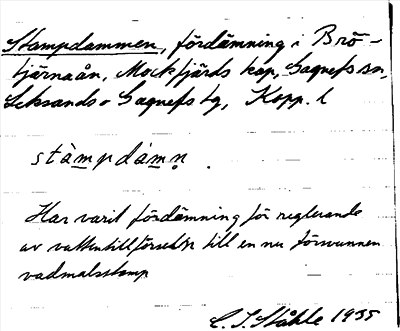 Stampdammen, fördämning i Brö-
tjärnaån, Mockfjärds kap, Gagnefs sn,
Leksands o Gagnefs tg, Kopp. l
stàmpdámn.
Har varit fördämning för reglerande
av vattentillförseln till en nu försvunnen
vadmalsstamp
C. I. Ståhle 1935